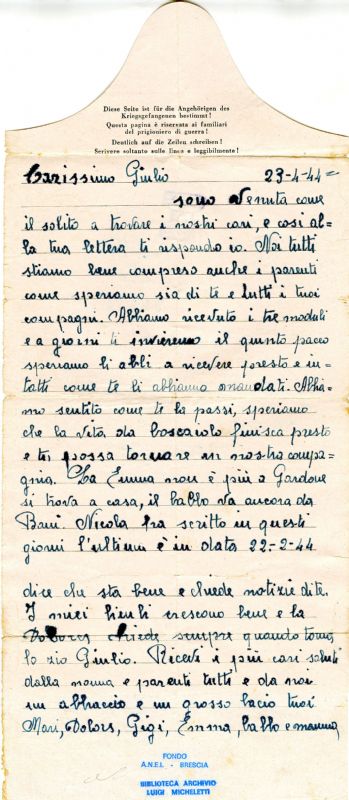 Diese Seite ist für die Angehörigen des
Kriegsgefangenen bestimmt!
Questa pagina è riservata ai familiari
del prigioniero di guerra!
Deutlich auf die Zeilen schreiben!
Scrivere soltanto sulle linee e leggibilmente!
Carissimo Giulio 23-4-44=
sono venuta come
il solito a trovare i nostri cari, e così al=
la tua lettera ti rispondo io. Noi tutti
stiamo bene compreso anche i parenti
come speriamo sia di te e tutti i tuoi
compagni. Abbiamo ricevuto i tre moduli
e a giorni ti invieremo il quinto pacco
speriamo li abbi a ricevere presto e in=
tatti come te li abbiamo mandati. Abbia=
mo sentito come te la passi, speriamo
che la vita da boscaiolo finisca presto
e tu possa tornare in nostra compa=
gnia. La Emma non è più a Gardone
si trova a casa, il babbo va ancora da
Bani. Nicola ha scritto in questi
giorni l'ultima è in data 22-2-44
dice che sta bene e chiede notizie di te.
I miei bimbi crescono bene e la
Dolores chiede sempre quando torna
lo zio Giulio. Ricevi i più cari saluti
dalla nonna e parenti tutti e da noi
un abbraccio e un grosso bacio tuoi
Mari, Dolors, Gigi, Emma, babbo e mamma
FONDO
A.N.E.I. - BRESCIA
BIBLIOTECA ARCHIVIO
LUIGI MICHELETTI